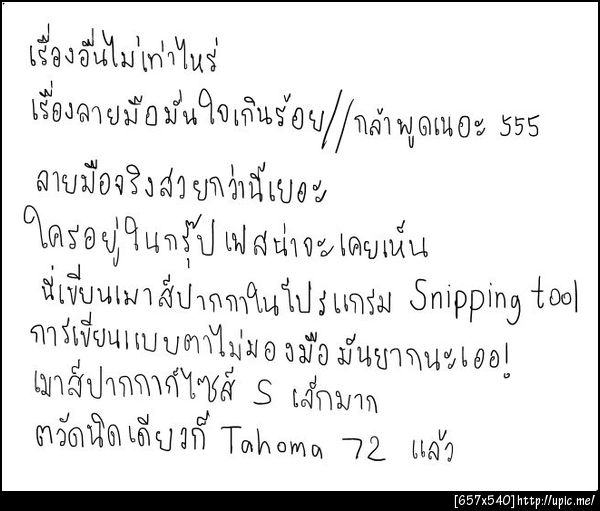 เรื่องอื่นไม่เท่าไหร่
เรื่องลายมือมั่นใจเกินร้อย//กล้าพูดเนอะ 555
ลายมือจริงสวยกว่านี้เยอะ
ใครอยู่ในกรุ๊ปเฟสน่าจะเคยเห็น
นี่เขียนเมาส์ปากกาในโปรแกรม Snipping tool
การเขียนแบบตาไม่มองมือมันยากนะเออ!
เมาส์ปากกาก็ไซส์ S เล็กมาก
ตวัดนิดเดียวก็ Tahoma 72 แล้ว
[657x540]http://upic.me/